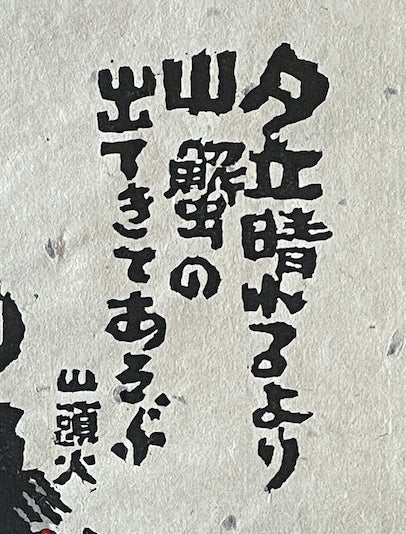 夕立晴れるより
山蟹の
出てきてあそぶ
山頭火